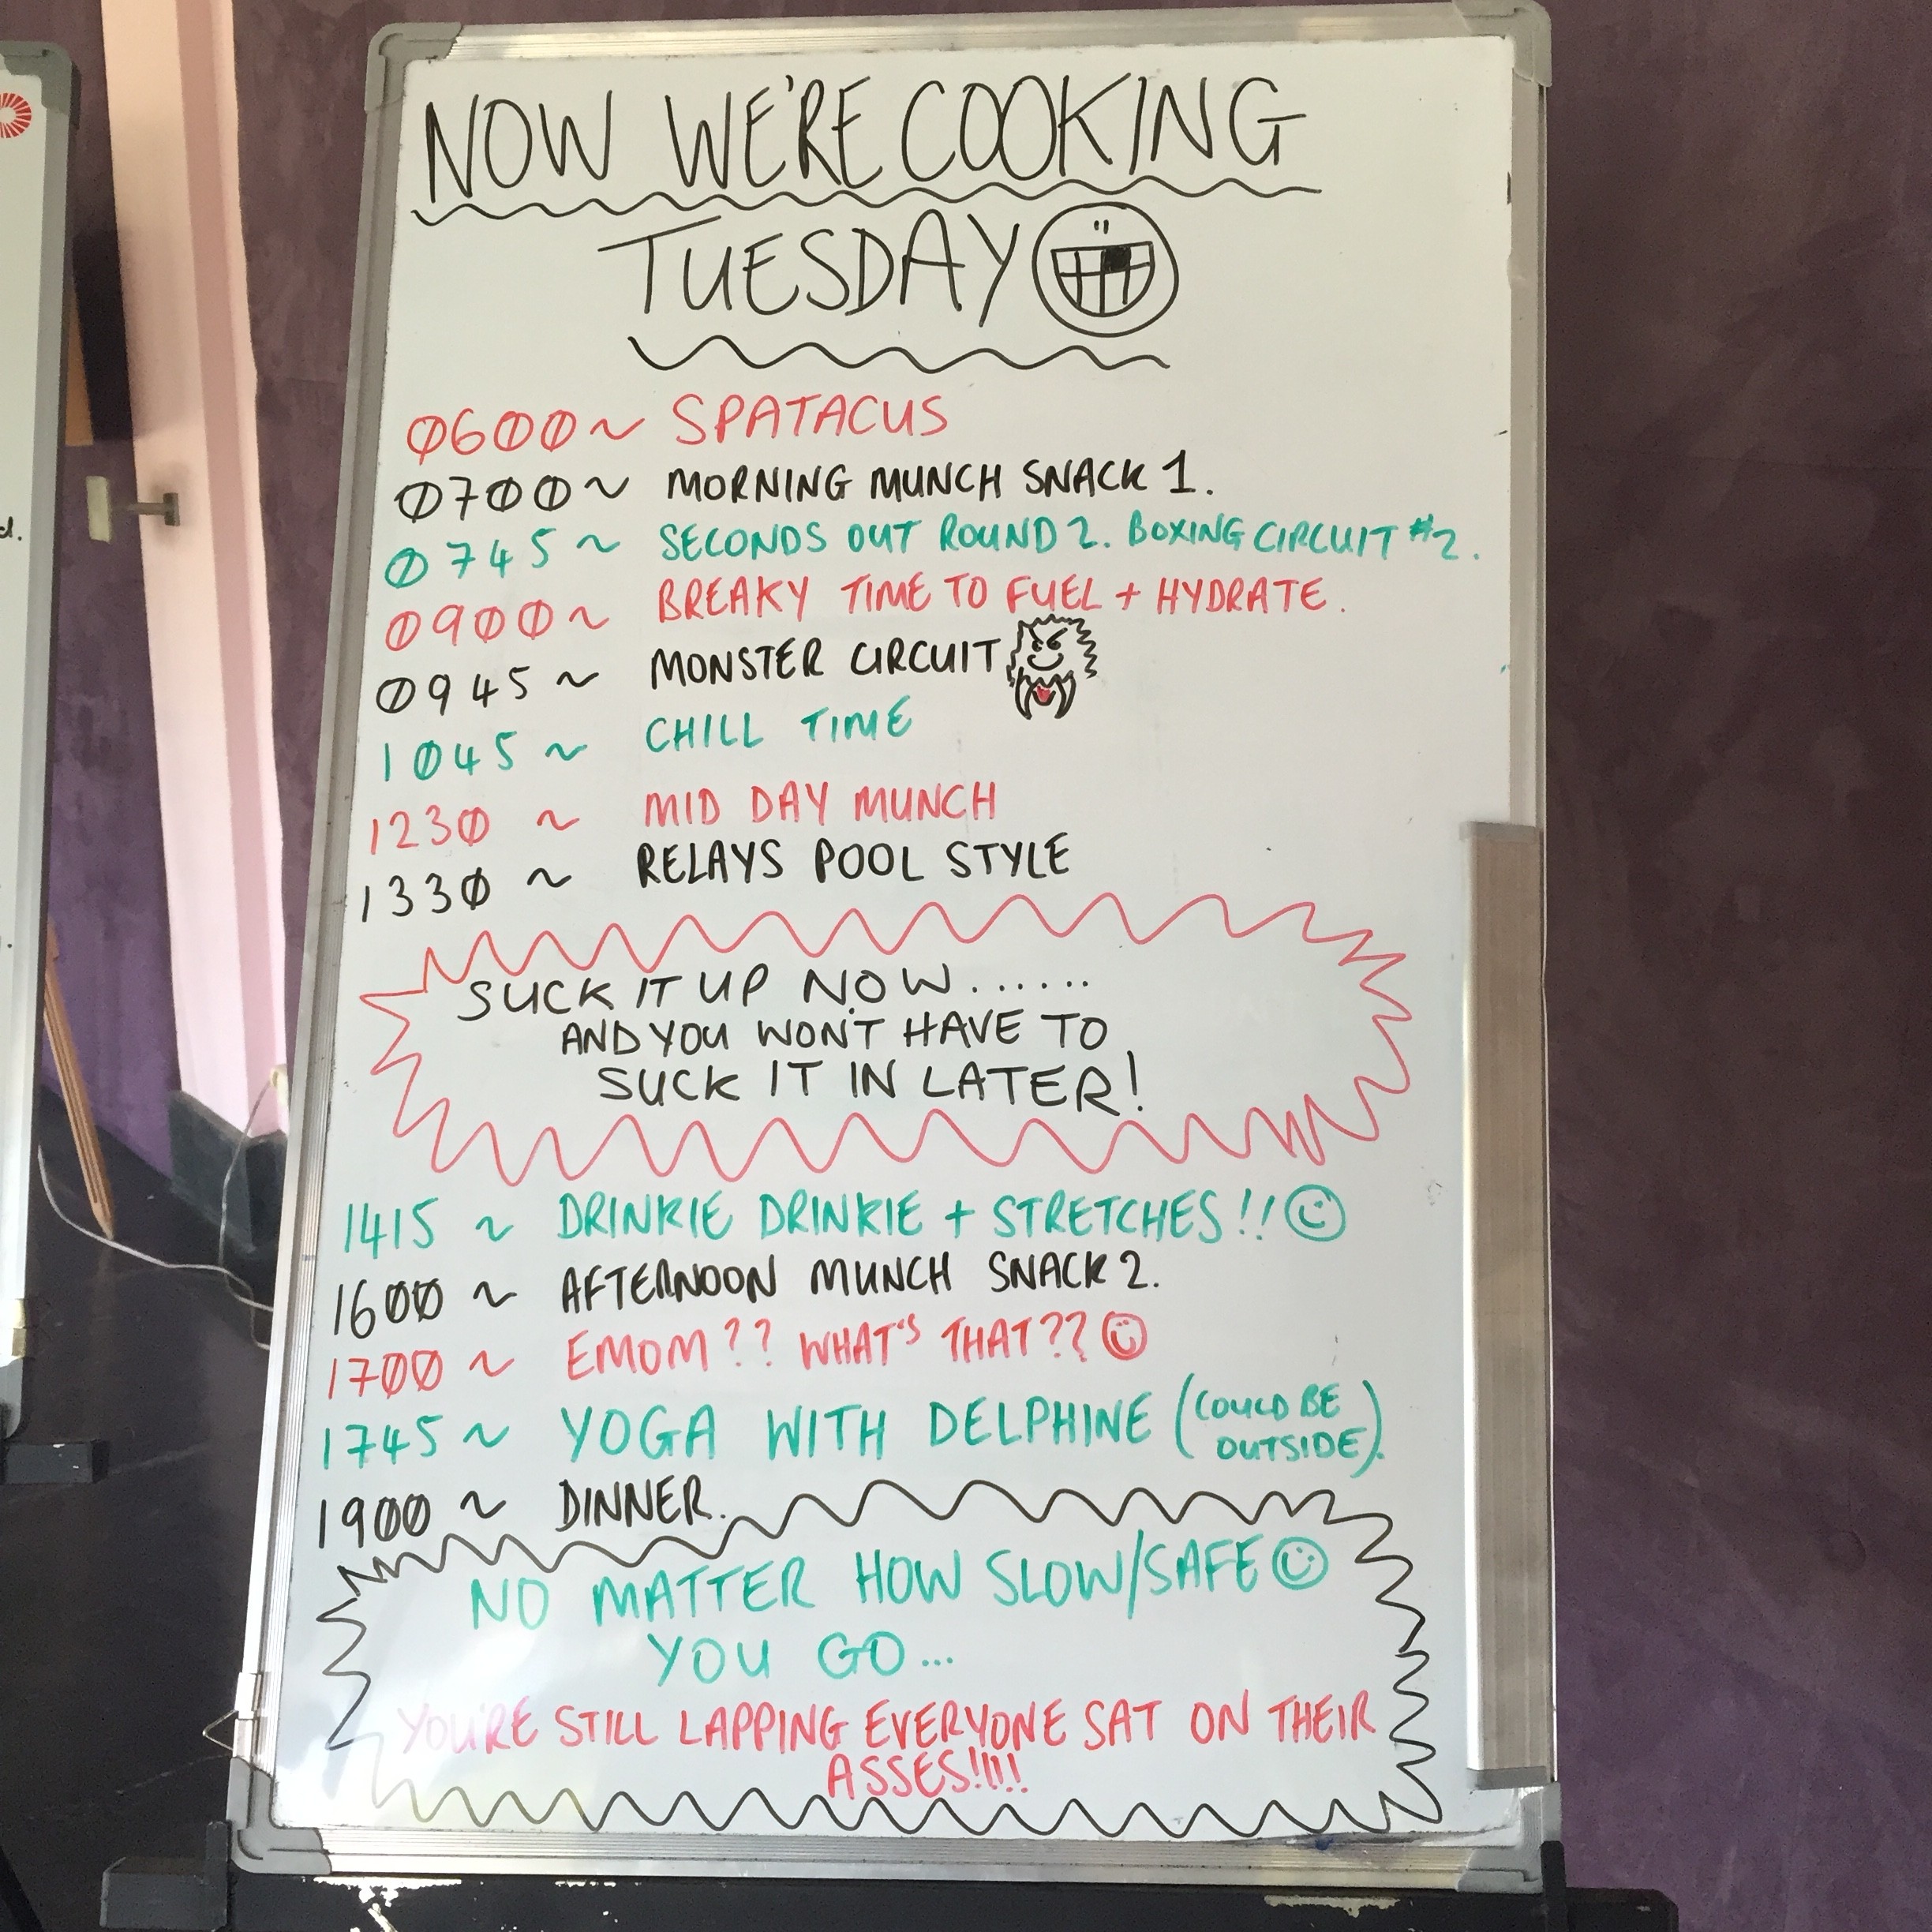 NOW WE'RE COOKING
TUESDAY
0600 ~ SPATACUS
0700 ~ MORNING MUNCH SNACK 1.
0745 ~ SECONDS OUT ROUND 2. BOXING CIRCUIT #2.
0900 ~ BREAKY TIME TO FUEL + HYDRATE.
0945 ~ MONSTER CIRCUIT
1045 ~ CHILL TIME
1230 ~ MID DAY MUNCH
1330 ~ RELAYS POOL STYLE
SUCK IT UP NOW......
AND YOU WON'T HAVE TO
SUCK IT IN LATER!
1415 ~ DRINKIE DRINKIE + STRETCHES!!
1600 ~ AFTERNOON MUNCH SNACK 2.
1700 ~ EMOM?? WHAT'S THAT??
1745 ~ YOGA WITH DELPHINE (COULD BE
OUTSIDE).
1900 ~ DINNER.
NO MATTER HOW SLOW/SAFE
YOU GO...
YOU'RE STILL LAPPING EVERYONE SAT ON THEIR
ASSES!!!!!